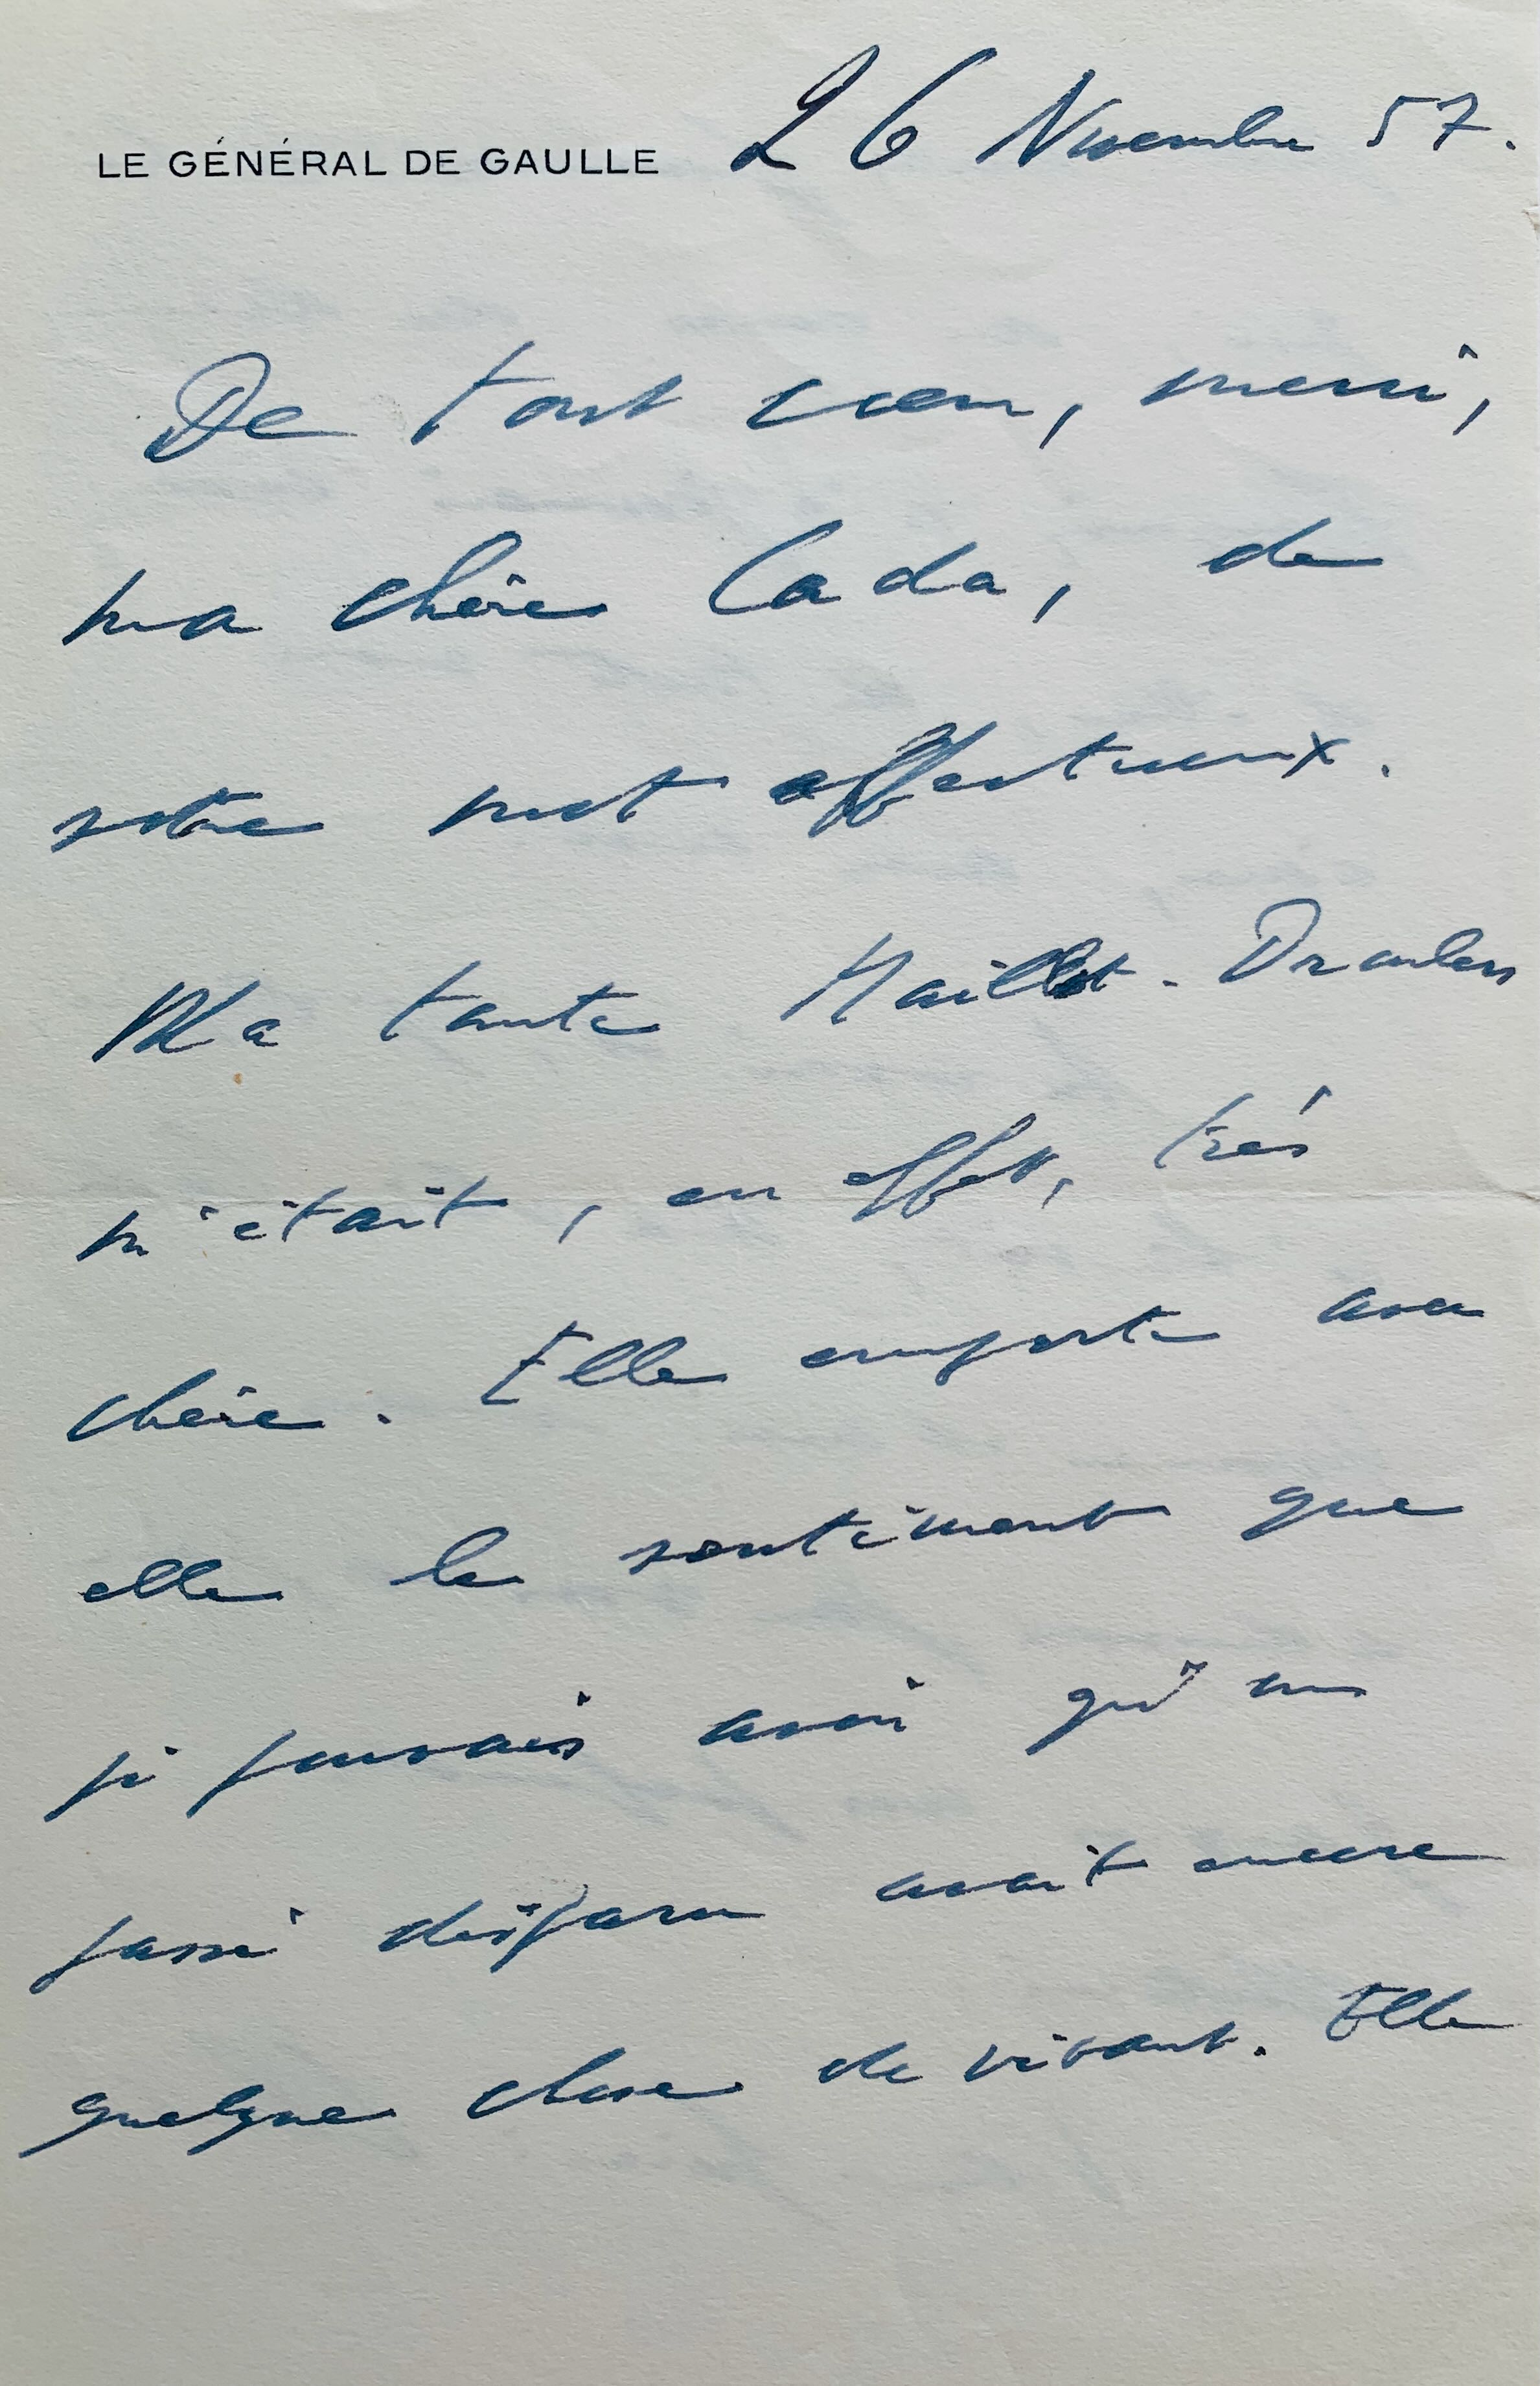 LE GÉNÉRAL DE GAULLE 26 Novembre 57.
De tout cœur, merci,
ma chère Cada, de
votre mot affectueux.
Ma tante Maillot-Droulers
m'était, en effet, très
chère. Elle emporte avec
elle le sentiment que
je pouvais avoir qu'un
passé disparu avait encore
quelque chose de vivant. Elle